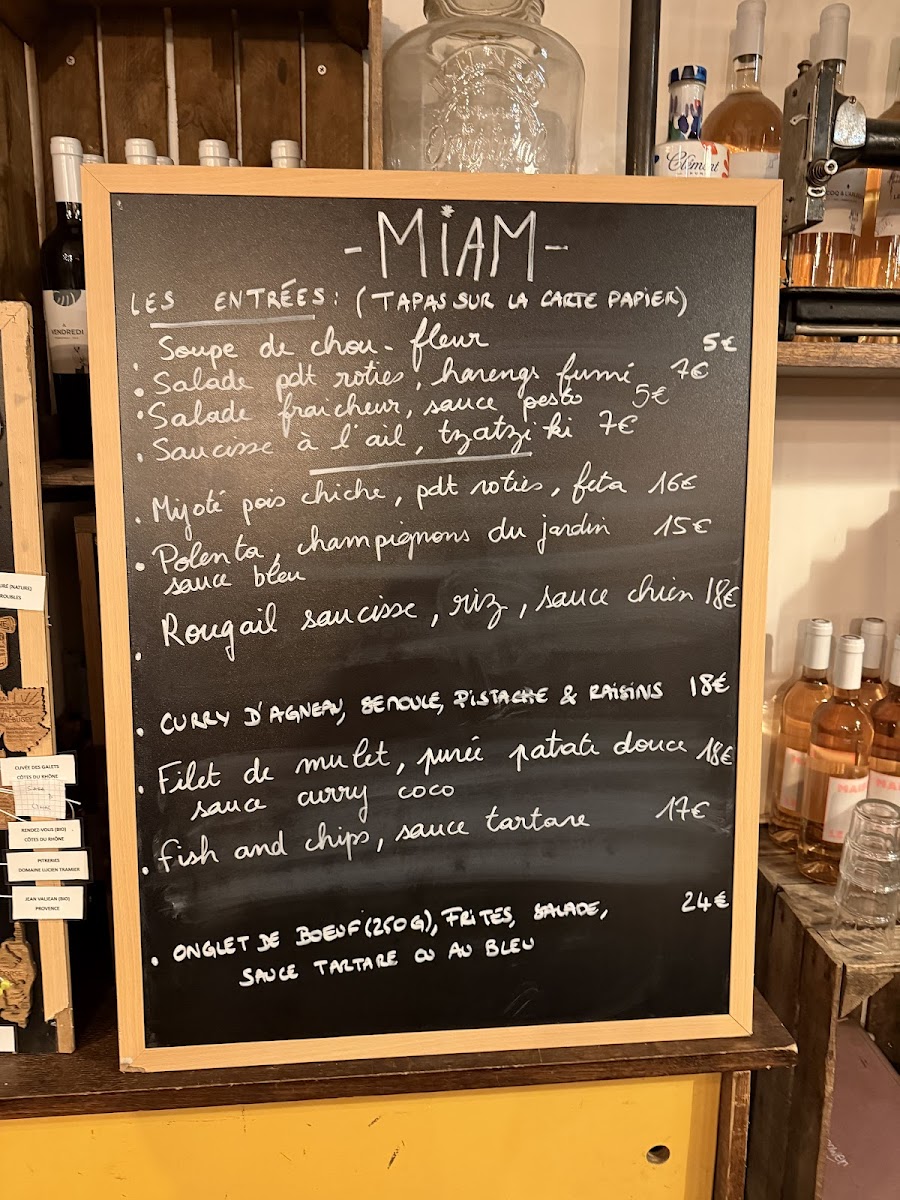 - MiAM -
LES ENTRÉES : (TAPAS SUR LA CARTE PAPIER)
. Soupe de chou-fleur 5€
. Salade pdt roties, harengs fumé 7€
. Salade fraicheur, sauce pesto 5€
. Saucisse à l'ail, tzatziki 7€
. Mijoté pois chiche, pdt roties, feta 16€
. Polenta, champignons du jardin 15€
sauce bleu
. Rougail saucisse, riz, sauce chien 18€
. CURRY D'AGNEAU, SEMOULE, PISTACHE & RAISINS 18€
. Filet de mulet, purée patate douce 18€
sauce curry coco
. Fish and chips, sauce tartare 17€
. ONGLET DE BOEUF (250G), FRITES, SALADE, 24€
SAUCE TARTARE OU AU BLEU
Clément
VENDREDI
CUVÉE DES GALETS
CÔTES DU RHÔNE
RENDEZ-VOUS (BIO)
CÔTES DU RHÔNE
PITRERIES
DOMAINE LUCIEN TRAMIER
JEAN VALJEAN (BIO)
PROVENCE